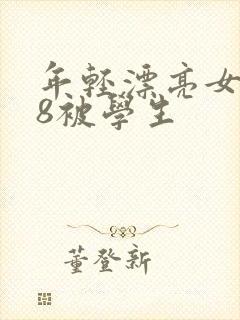 年輕漂亮女
8被學生
董登新